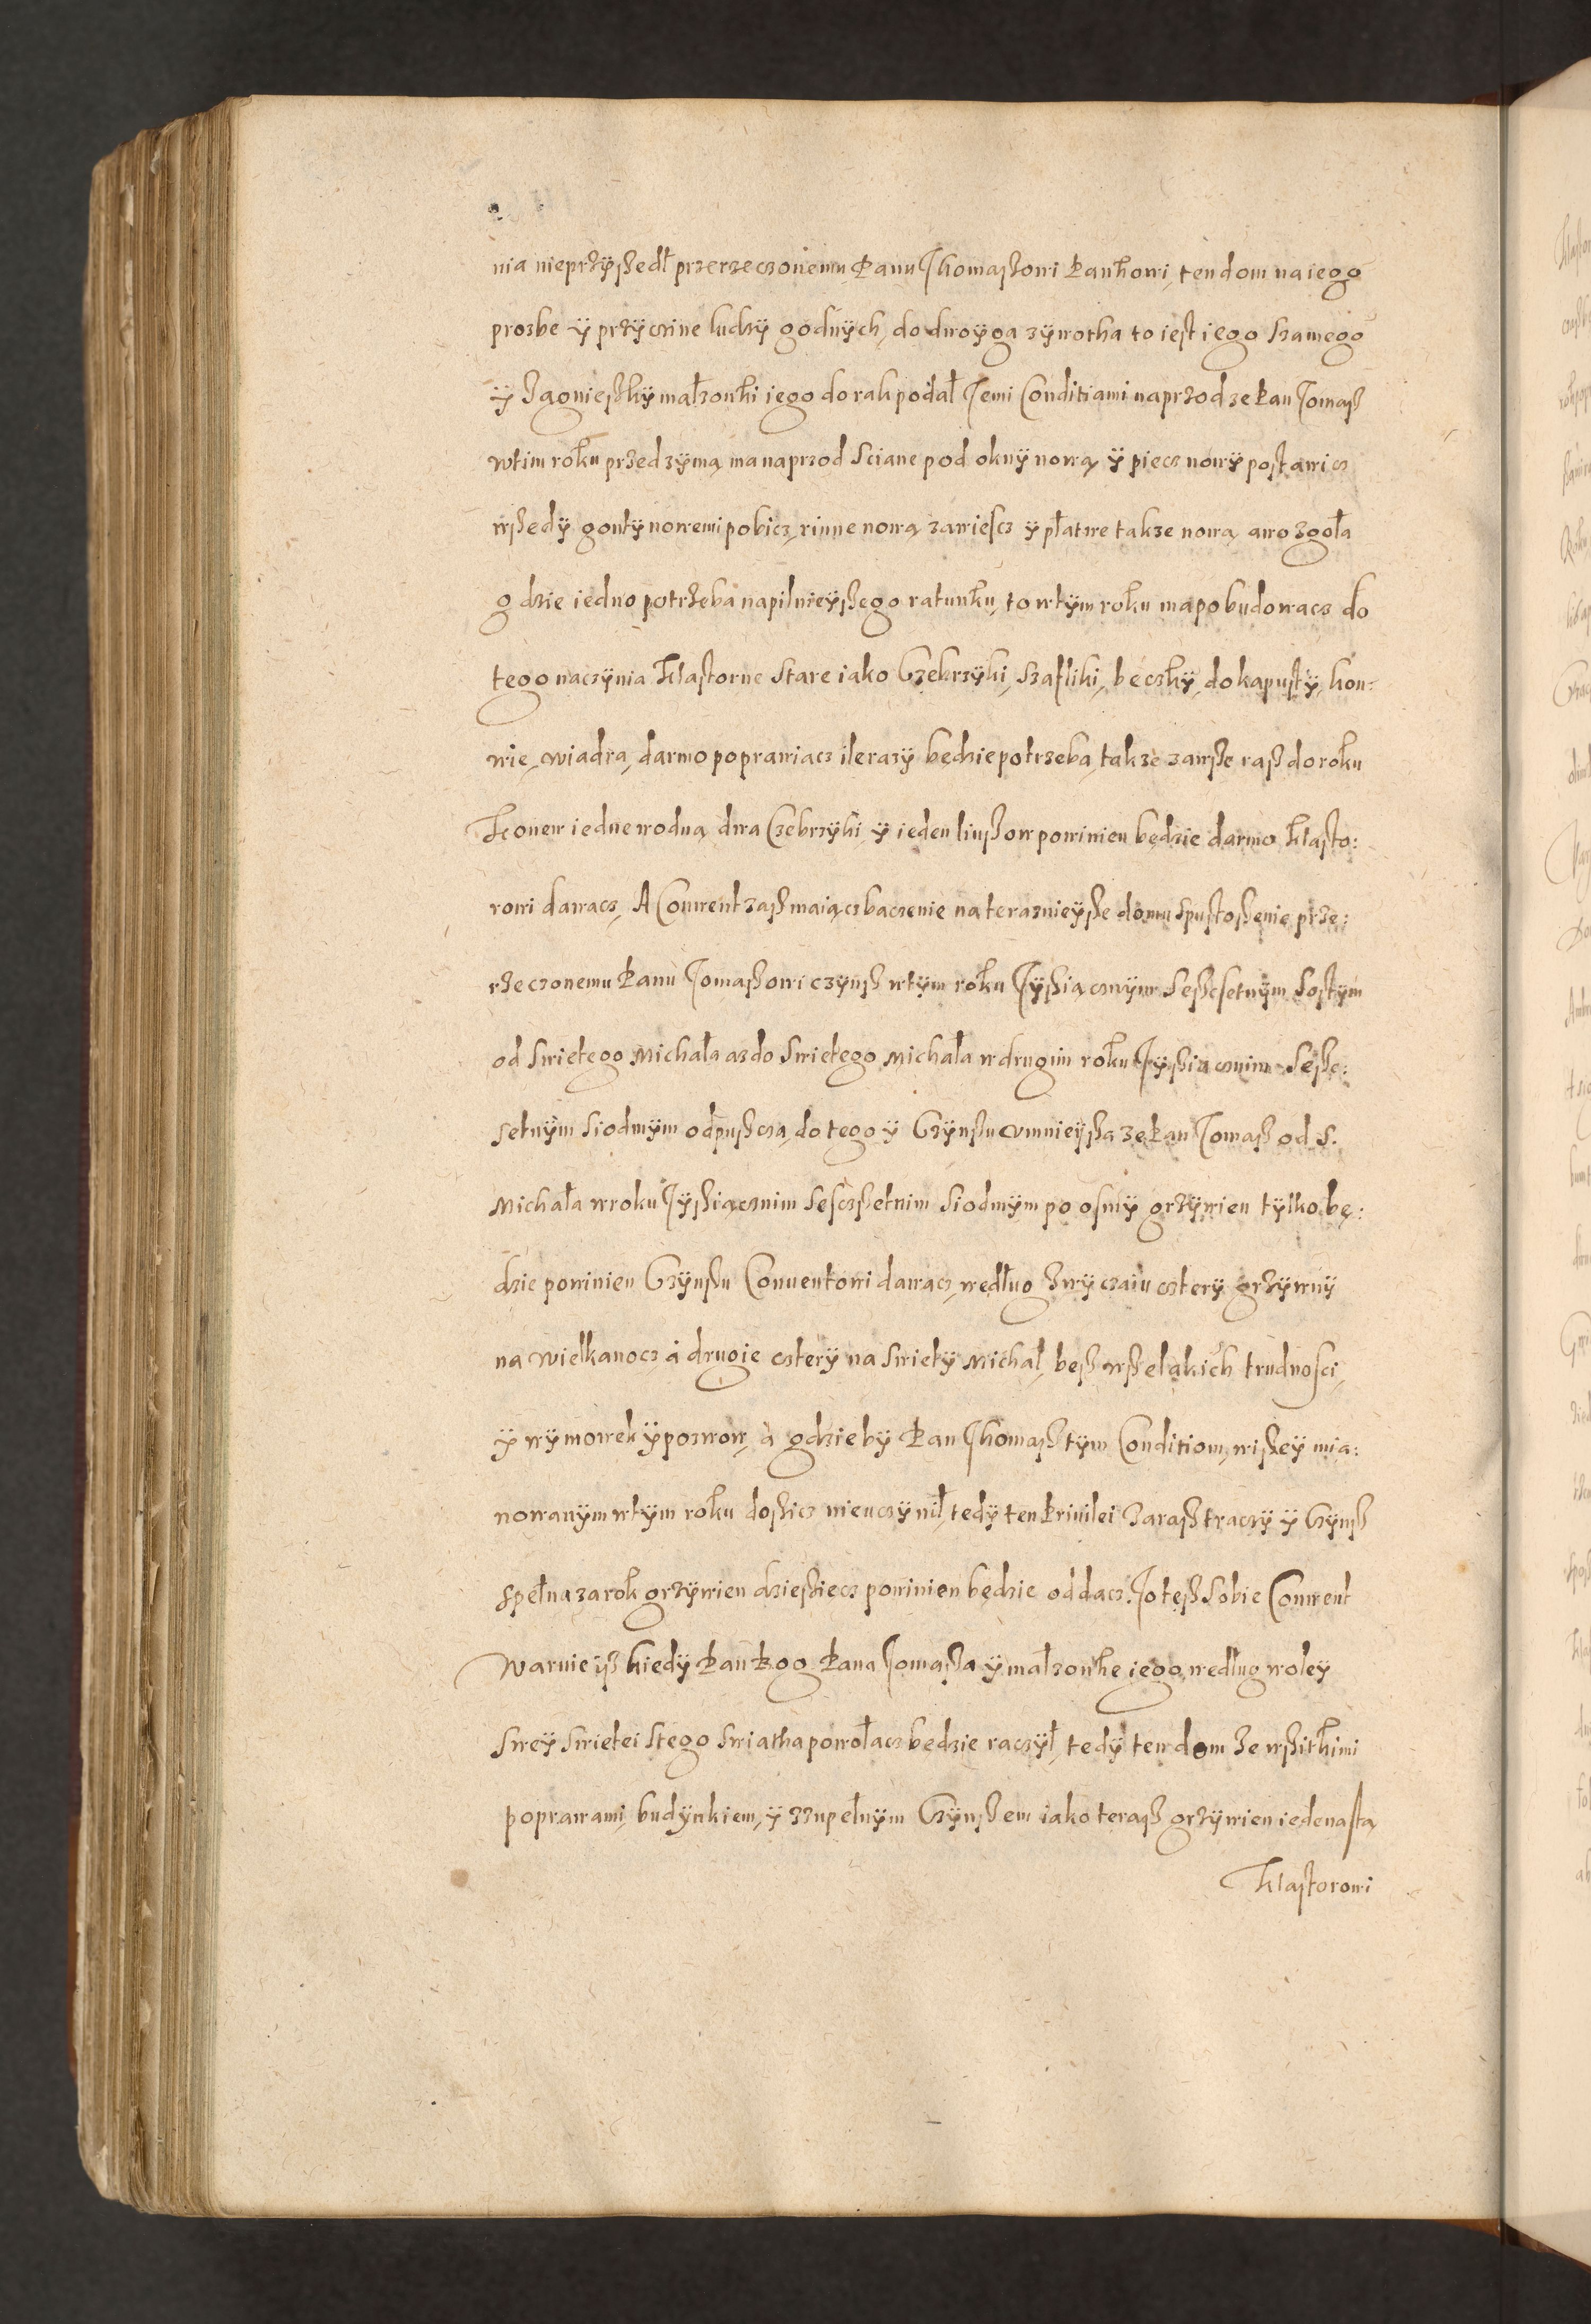 nia nieprzÿszedł przerzeczonemu Panu Thomaszowi Pankowi, ten dom na iego
prozbe ÿ przÿczine ludzÿ godnÿch, do dwoÿga zÿwotha to iest iego szamego
ÿ Jagnieszkÿ małzonki iego do rak podał Temi Conditiami naprzod ze Pan Tomasz
wtim roku przed zÿmą ma naprzod Sciane pod oknÿ nową ÿ piecz nowÿ postawicz
wszedÿ gontÿ nowemi pobicz, rinne nową zawiescz ÿ płatwe takze nową awo zgoła
gdzie iedno potrzeba napilnieÿszego ratunku, to wtÿm roku ma pobudowacz do
tego naczÿnia Klastorne Stare iako Czebrzÿki, Szafliki, beczkÿ, do kapustÿ, kon:
wie, wiadra, darmo poprawiacz ile razÿ będzie potrzeba, takze zawsze rasz do roku
Konew iedne wodną dwa Czebrzÿki ÿ ieden linszow powinien będzie darmo Klasto:
rowi dawacz, A Conwent zasz maiącz baczenie na terasznieÿsze domu Spustoszenie prze:
rzeczonemu Panu Tomaszowi czÿnsz wtÿm roku Tÿsziącznÿm Seszcsetnÿm Sostÿm
od Swietego Michała asz do Swietego Michała w drugim roku Tÿsziącznim Sesze:
setnÿm Siodmÿm odpuszcza, do tego ÿ Czÿnszu vmnieÿsza ze Pan Tomasz od S.
Michała w roku Tÿsziącznim Sesczszetnim Siodmÿm po osmÿ grzÿwien tÿlko bę:
dzie powinien Czÿnszu Conuentowi dawacz, według zwÿczaiu czterÿ grzÿwnÿ
na Wielkanocz á drugie czterÿ na Swietÿ Michał, besz wszelakich trudnosci,
ÿ wÿmowek ÿ pozwow, á gdzie bÿ Pan Thomasz tÿm Conditiom, wiszeÿ mia:
nowanÿm wtÿm roku doszicz nieuczÿnił, tedÿ ten Priuilei Zarasz traczÿ ÿ Czÿnsz
spełna za rok grzÿwien dziesziecz powinien będzie oddacz. To tesz Sobie Conwent
Warnie isz kiedÿ Pan Bog Pana Tomasza ÿ małzonke iego, według woleÿ
Sweÿ Swietei Stego Swiatha powołacz będzie raczÿł, tedÿ ten dom ze wszitkimi
poprawami, budÿnkiem, ÿ zzupełnÿm Czÿnszem iako terasz grzÿwien iedenasta
Klastorowi